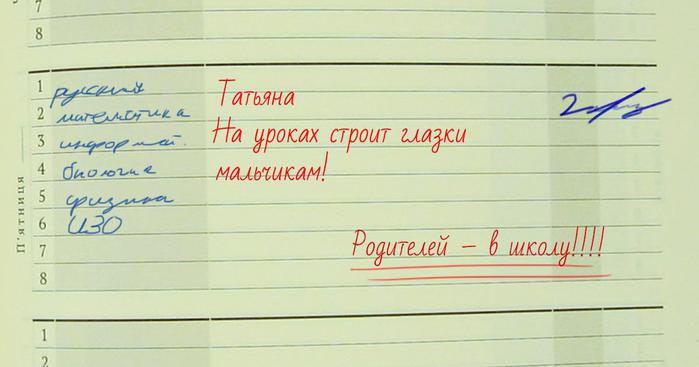 7
8
П'ятниця
1 русский
2 математика
3 информат.
4 биология
5 физика
6 ИЗО
7
8
Татьяна
На уроках строит глазки
мальчикам!
Родителей – в школу!!!!
1
2